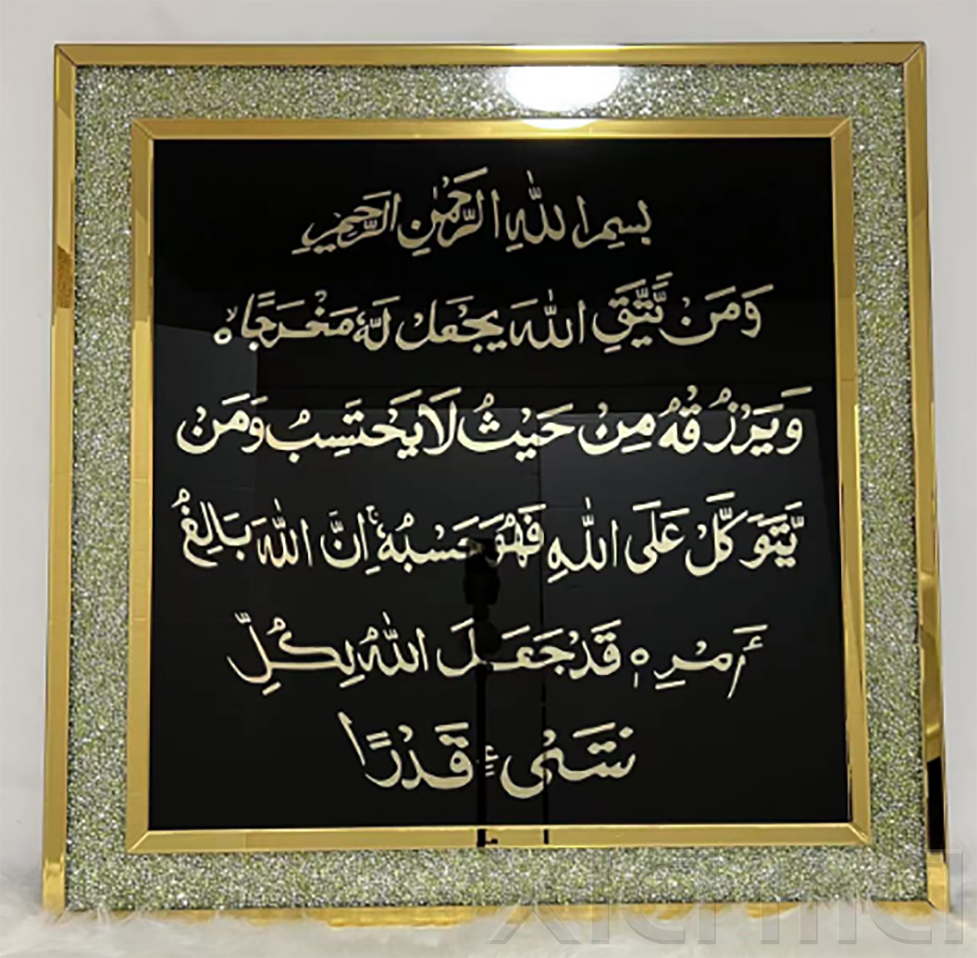 بسم الله الرَّحْمٰنِ الرَّحِيمِ
وَمَنْ يَّتَّقِ اللهَ يَجْعَلْ لَّهٗ مَخْرَجًا
وَيَرْزُقْهُ مِنْ حَيْثُ لَا يَحْتَسِبُ وَمَنْ
يَّتَوَكَّلْ عَلَى اللهِ فَهُوَ حَسْبُهٗ اِنَّ اللهَ بَالِغُ
أَمْرِهٖ قَدْ جَعَلَ اللهُ لِكُلِّ
شَىْءٍ قَدْرًا